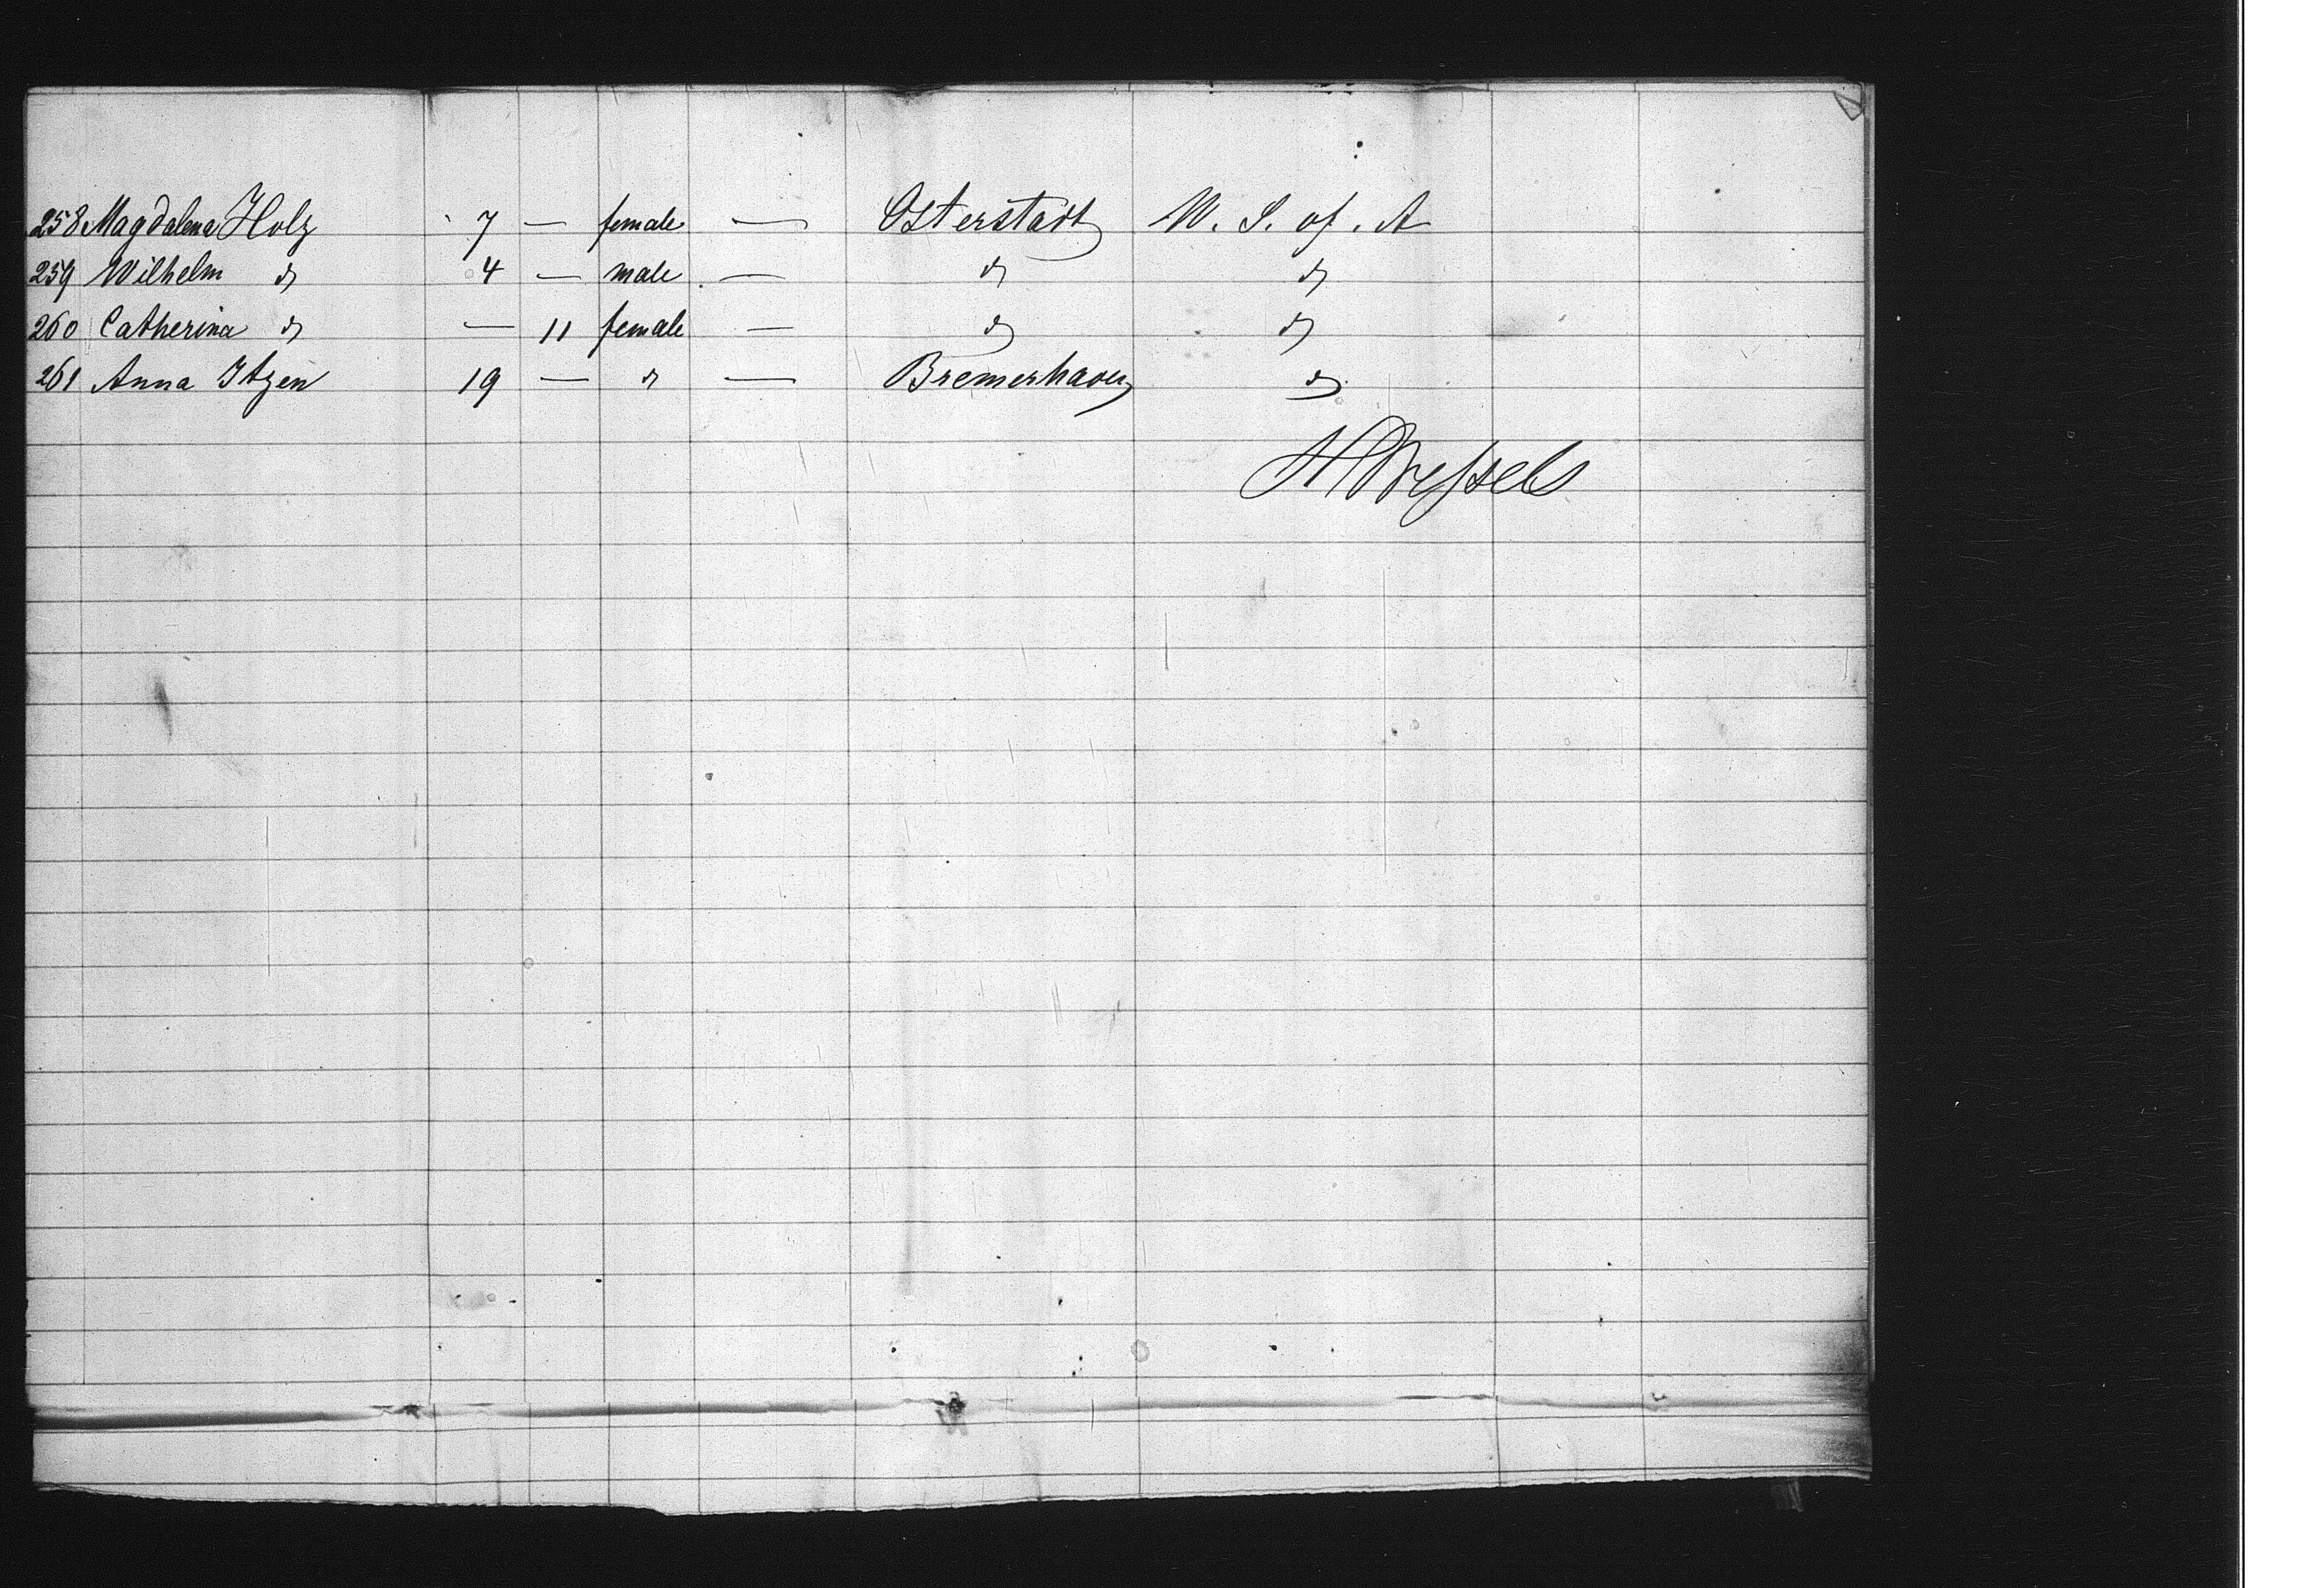 258 Magdalena Holz 7 — female — Osterstadt U. S. of. A
259 Wilhelm do 4 — male — do do
260 Catherina do — 11 female — do do
261 Anna Itzen 19 — do — Bremerhaven do
H Wessels